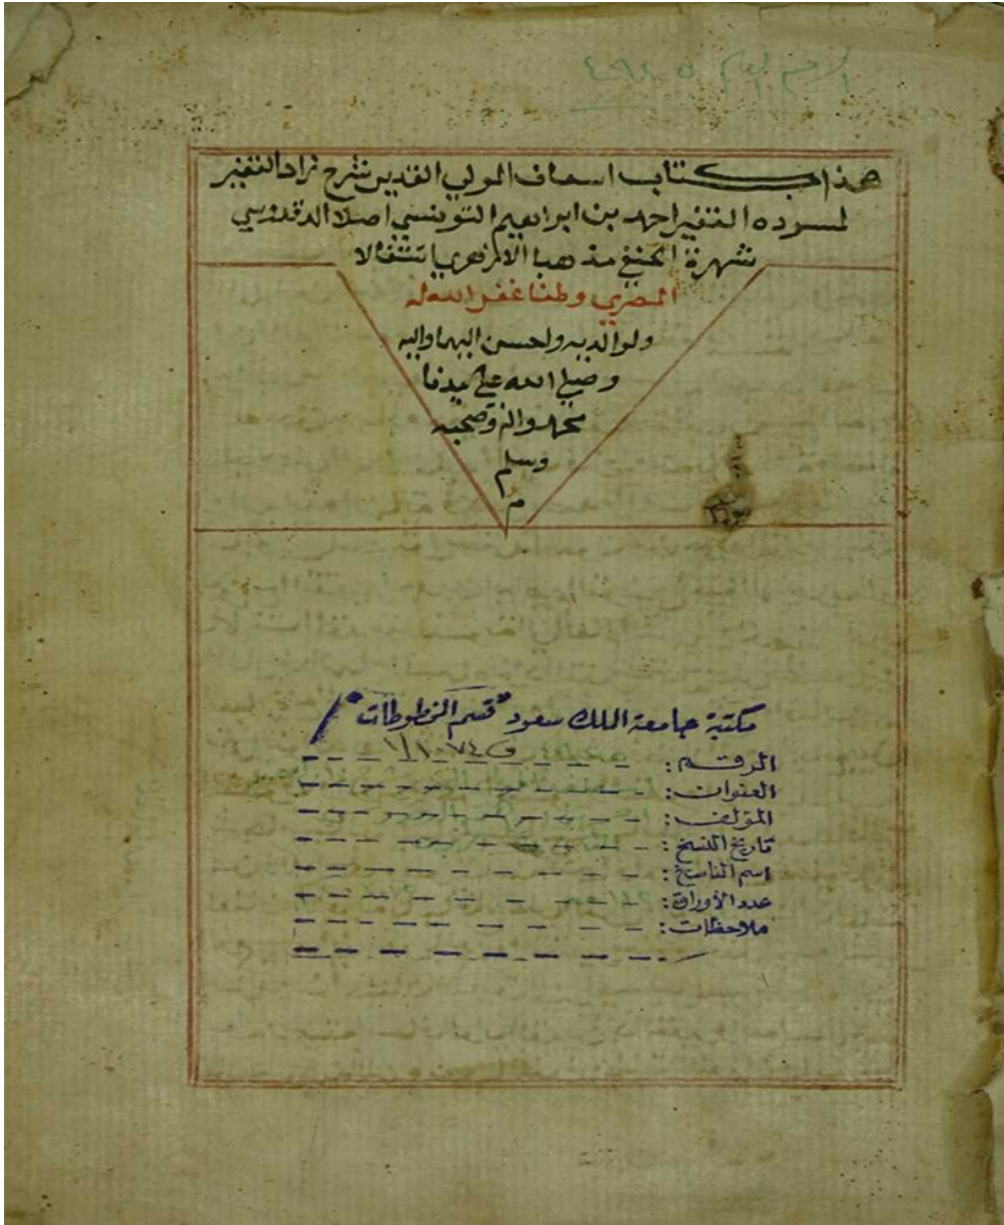 الرقم العام
هذا كتاب اسعاف المولي القدير شرح زاد الفقير
لمسوده الفقير احمد بن ابراهيم التونسي اصلا الدقدوسي
شهرة الحنفي مذهبا الازهري اشتغالا
المصري وطنا غفر الله له
ولوالديه واحسن اليهما واليه
وصلي الله علي سيدنا
محمد واله وصحبه
وسلم
م
مكتبة جامعة الملك سعود "قسم المخطوطات"
الرقم:
العنوان:
المؤلف:
تاريخ النسخ:
اسم الناسخ:
عدد الأوراق:
ملاحظات: